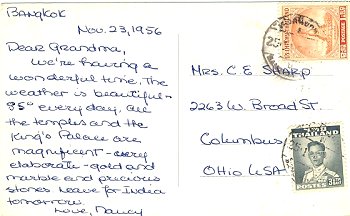 BANGKOK
Nov. 23, 1956
Dear Grandma,
We're having a
wonderful time. The
weather is beautiful-
85° every day, all
the temples and the
King's Palace are
magnificent - very
elaborate - gold and
marble and precious
stones. Leave for India
tomorrow.
Love, Nancy
MRS. C. E. SHARP
2263 W. Broad St.
Columbus,
Ohio USA
THAILAND
POSTAGE